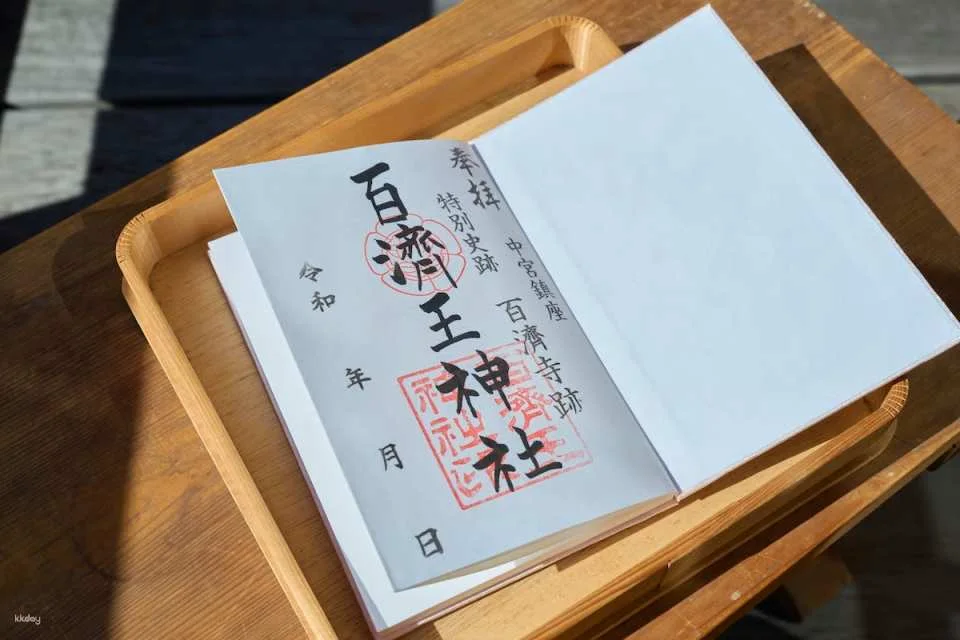 奉拝
中宮鎮座
特別史跡
百濟寺跡
百濟王神社
令和 年 月 日
kkday